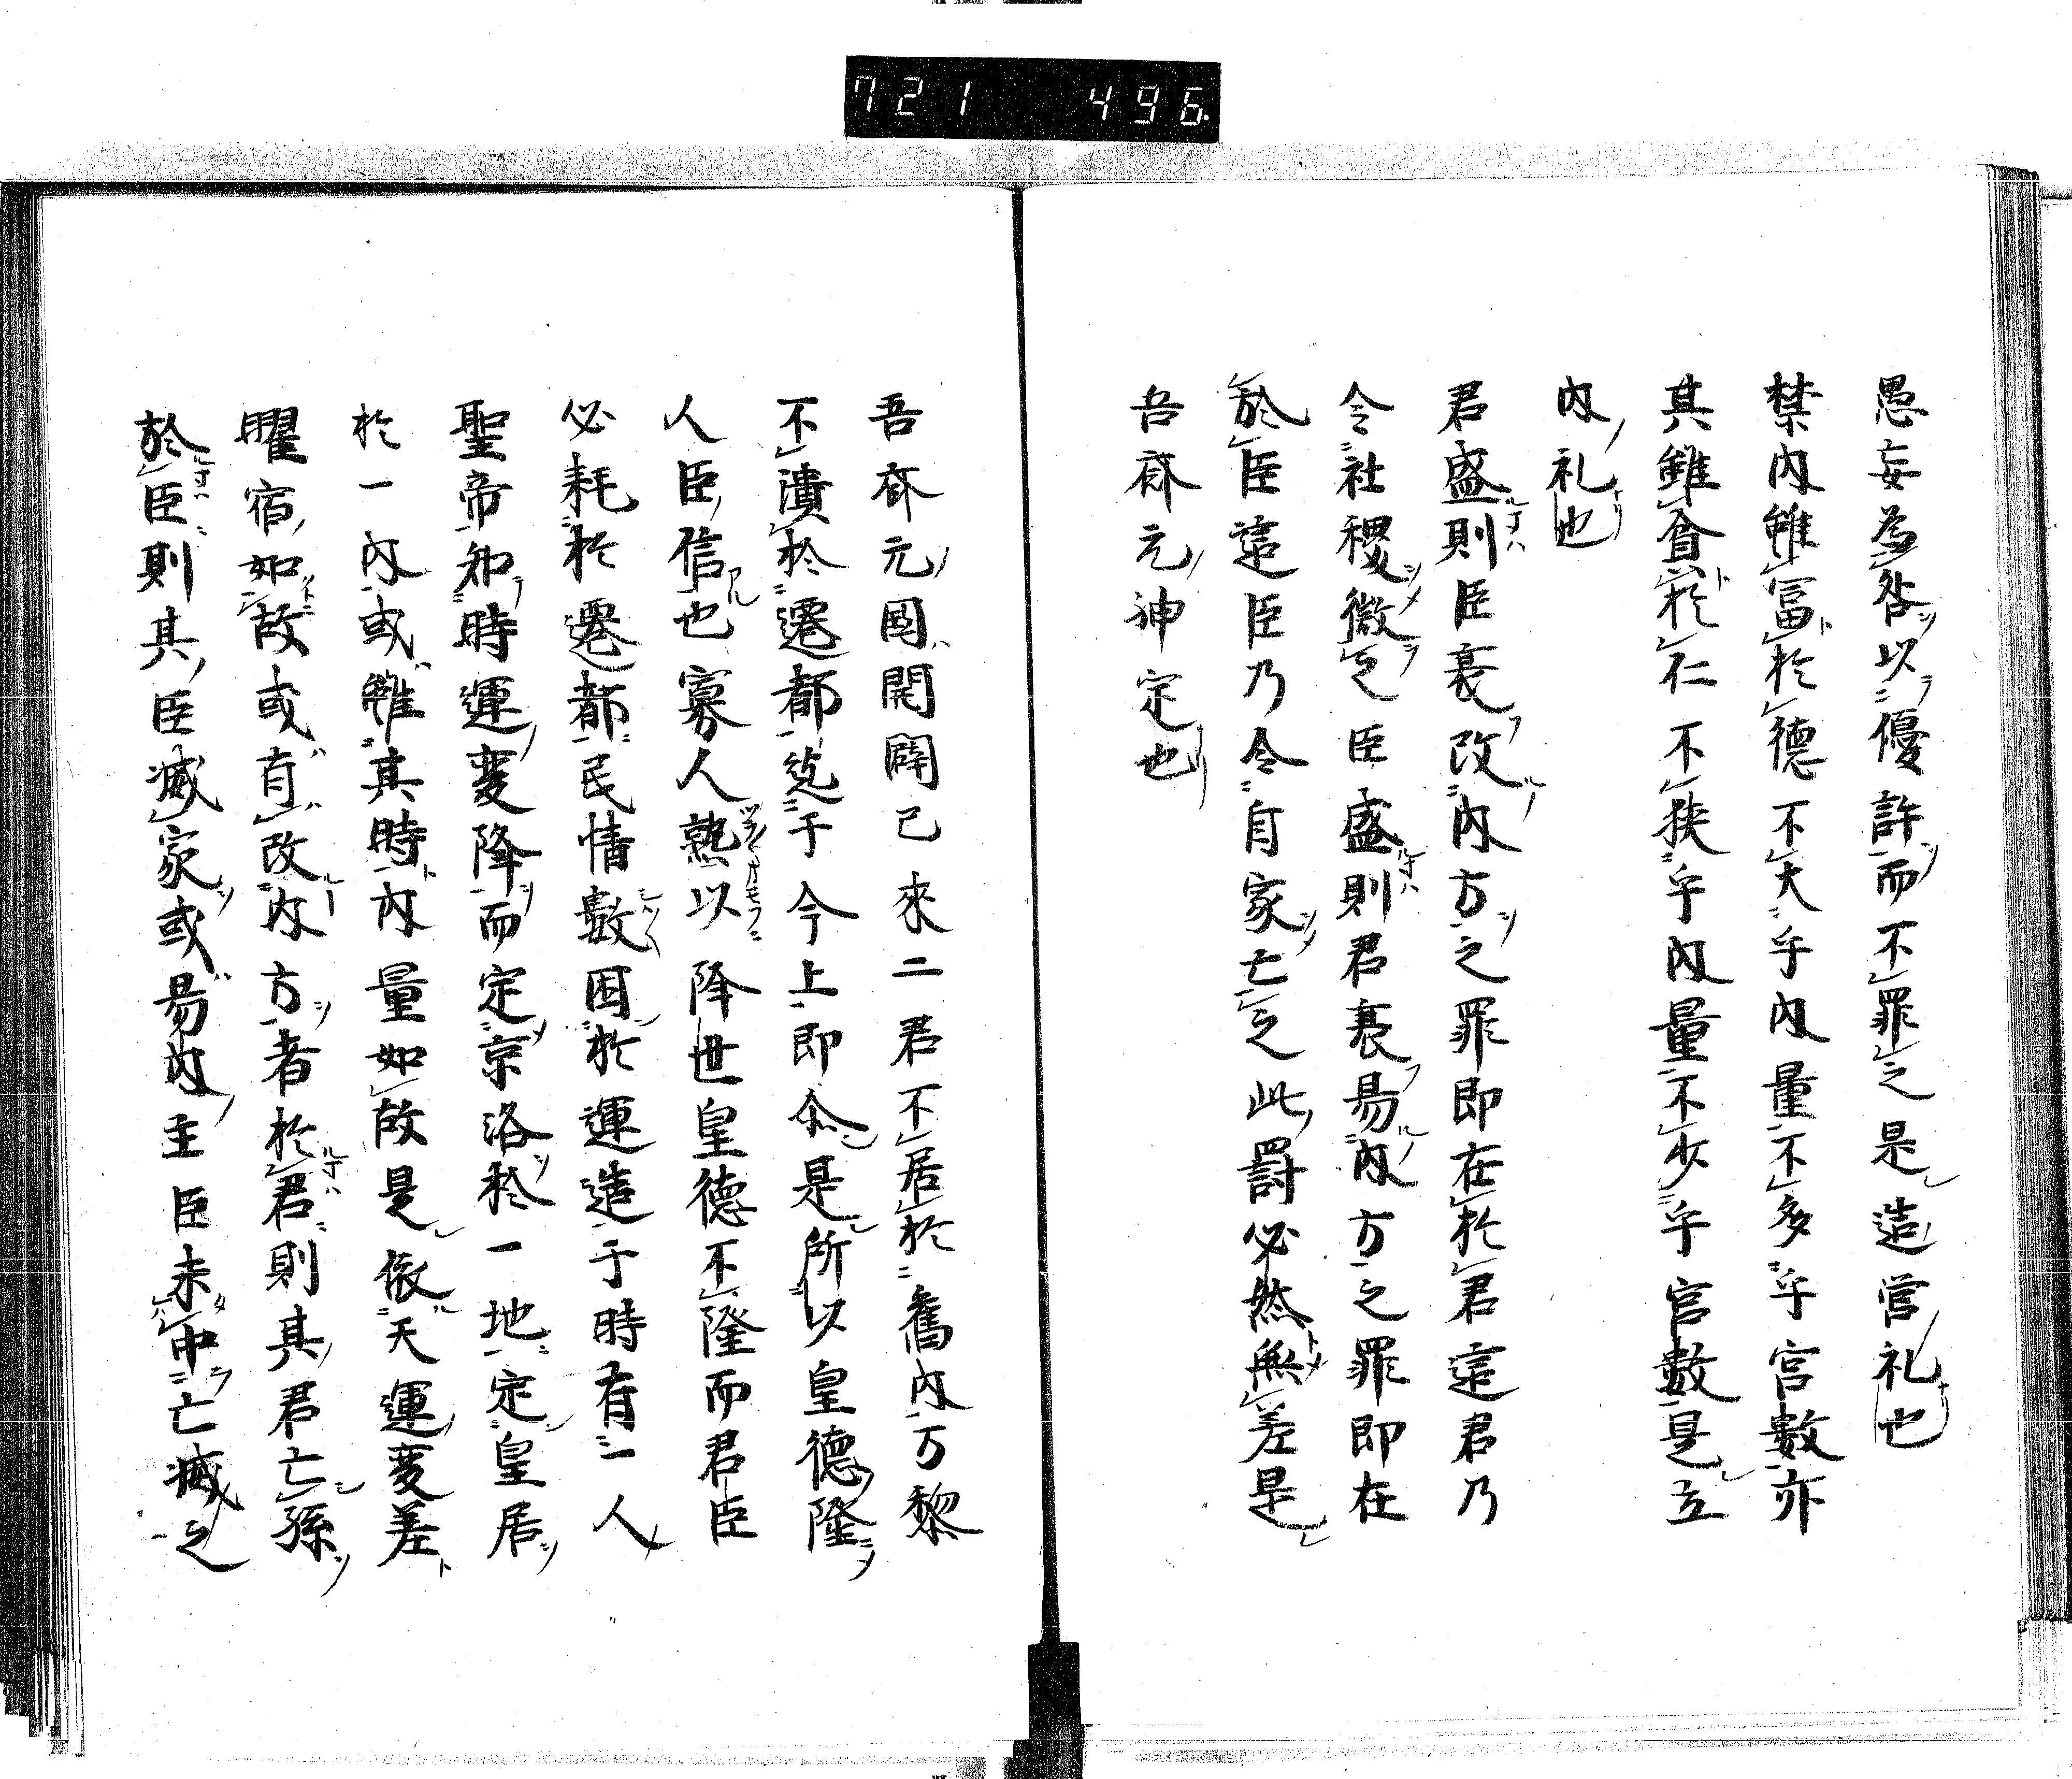 721 496
愚妄為咎以優許而不罪之是造営礼也
禁内雖富於德不大乎内量不多乎宮數亦
其雖貪於仁不狹乎内量不少乎官數是立
内礼也
君盛則臣衰改内方之罪即在於君這君乃
令社稷微之臣盛則君衰易内方之罪即在
於臣這臣乃令自家亡之此罰必然無差是
吾齊元神定也
吾齊元国開闢已來二君不居於舊内万黎
不潰於遷都迄于今上即尒是所以皇德隆
人臣信也寡人熟以降世皇德不隆而君臣
必耗於遷都民情數困於運造于時有一人
聖帝知時運変降而定京洛於一地定皇居
於一内或雖其時内量如故是依天運変差
曜宿如故或有改内方者於君則其君亡孫
於臣則其臣滅家或易内主臣未中亡滅之